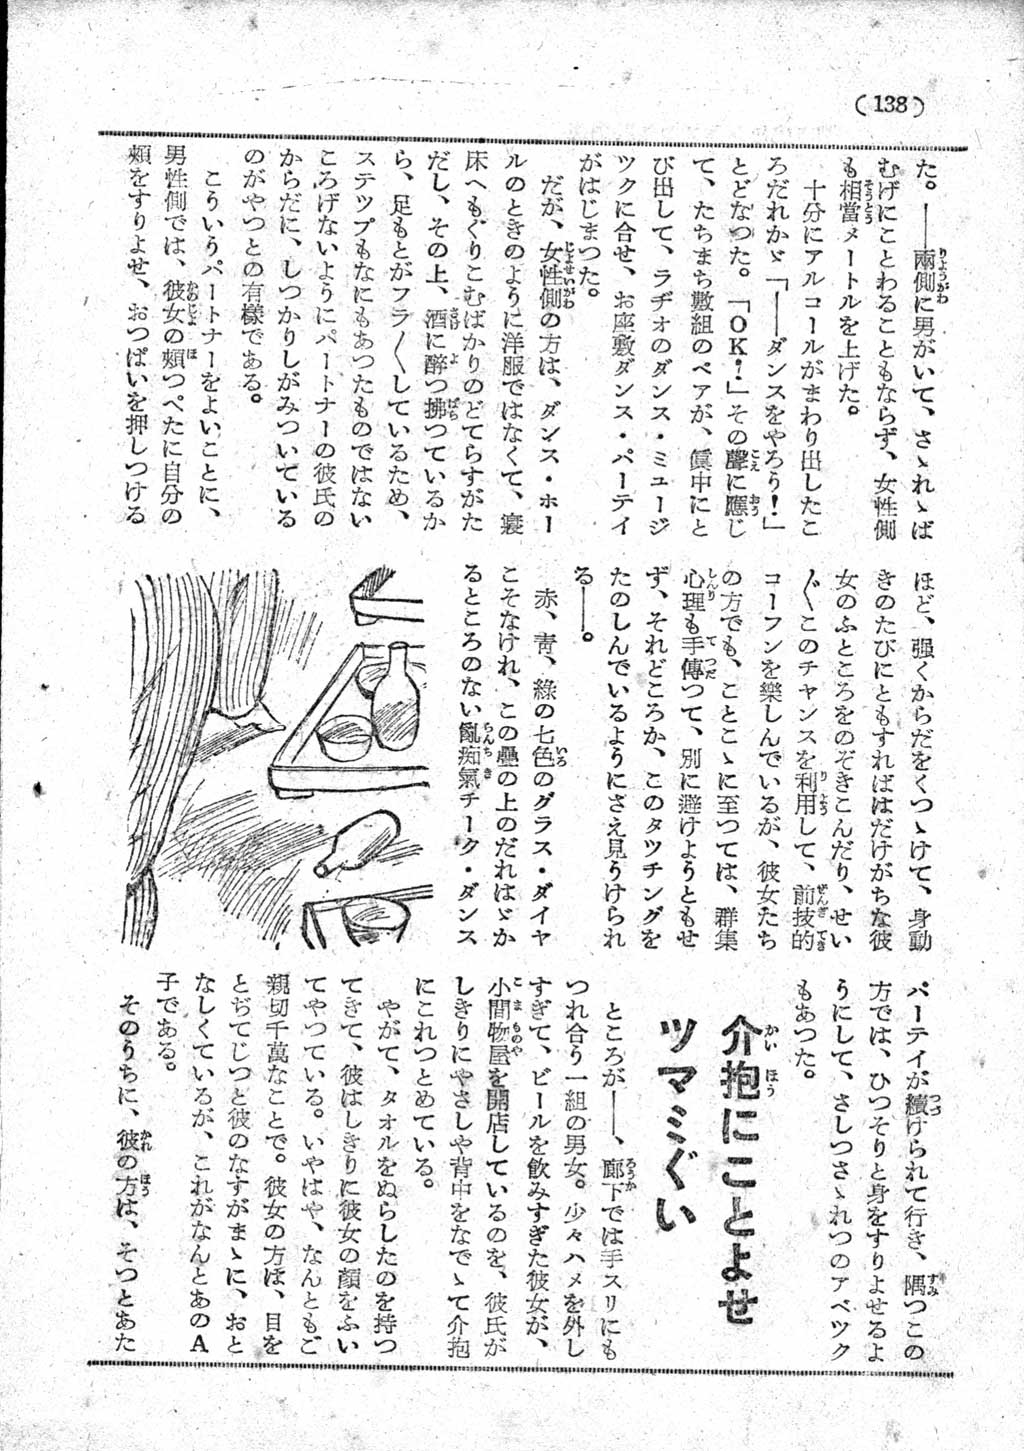 (138)
た。――兩側に男がいて、さゝれゝば
むげにことわることもならず、女性側
も相當メートルを上げた。
十分にアルコールがまわり出したこ
ろだれかゞ「――ダンスをやろう！」
とどなつた。「OK！」その聲に應じ
て、たちまち數組のペアが、眞中にと
び出して、ラヂオのダンス・ミュージ
ツクに合せ、お座敷ダンス・パーテイ
がはじまつた。
だが、女性側の方は、ダンス・ホー
ルのときのように洋服ではなくて、寢
床へもぐりこむばかりのどてらすがた
だし、その上、酒に醉つ拂つているか
ら、足もとがフラ〳〵しているため、
ステツプもなにもあつたものではない
ころげないようにパートナーの彼氏の
からだに、しつかりしがみついている
のがやつとの有樣である。
こういうパートナーをよいことに、
男性側では、彼女の頰つぺたに自分の
頰をすりよせ、おつぱいを押しつける
ほど、强くからだをくつゝけて、身動
きのたびにともすればはだけがちな彼
女のふところをのぞきこんだり、せい
〴〵このチャンスを利用して、前技的
コーフンを樂しんでいるが、彼女たち
の方でも、ことこゝに至つては、群集
心理も手傳つて、別に避けようともせ
ず、それどころか、このタツチングを
たのしんでいるようにさえ見うけられ
る――。
赤、靑、綠の七色のグラス・ダイヤ
こそなけれ、この疊の上のだれはゞか
るところのない亂痴氣チーク・ダンス
パーテイが續けられて行き、隅つこの
方では、ひつそりと身をすりよせるよ
うにして、さしつさゝれつのアベツク
もあつた。
介抱にことよせ
ツマミぐい
ところが――、廊下では手スリにも
つれ合う一組の男女。少々ハメを外し
すぎて、ビールを飮みすぎた彼女が、
小間物屋を開店しているのを、彼氏が
しきりにやさしや背中をなでゝて介抱
にこれつとめている。
やがて、タオルをぬらしたのを持つ
てきて、彼はしきりに彼女の顏をふい
てやつている。いやはや、なんともご
親切千萬なことで。彼女の方は、目を
とぢてじつと彼のなすがまゝに、おと
なしくているが、これがなんとあのA
子である。
そのうちに、彼の方は、そつとあた